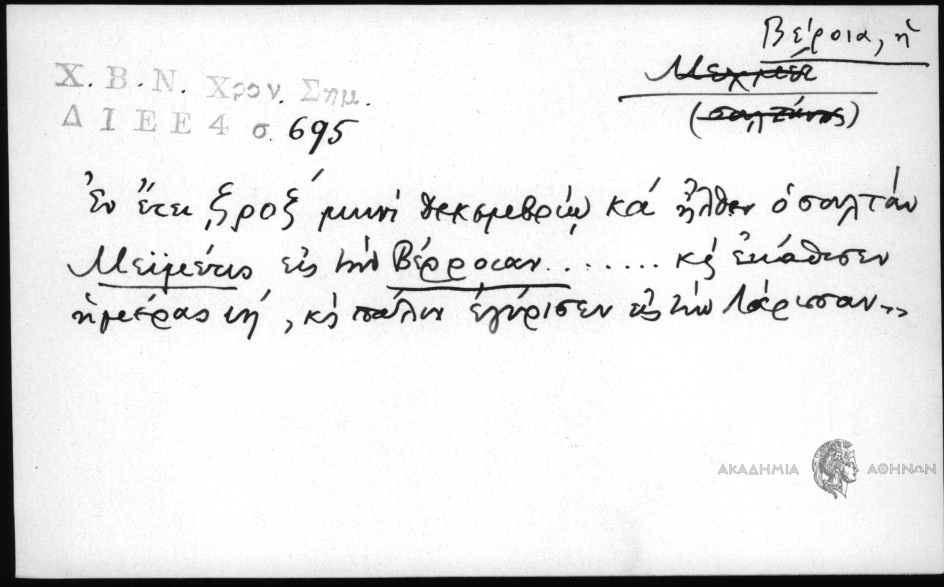 Βέροια, ἡ
Μεχμέτ
(σουλτάνος)
Χ. Β. Ν. Χρον. Σημ.
Δ Ι Ε Ε 4 σ. 695
Ἐν ἔτει ͵ζροξ́ μηνὶ δεκεμβρίῳ κά ἦλθεν ὁ σουλτάν
Μεϊμέτις εἰς τὴν Βέρροιαν ....... κ̀ ἐκάθισεν
ἡμέρας ιή, κ̀ πάλιν ἐγύρισεν εἰς τὴν Λάρισσαν..
ΑΚΑΔΗΜΙΑ ΑΘΗΝΩΝ